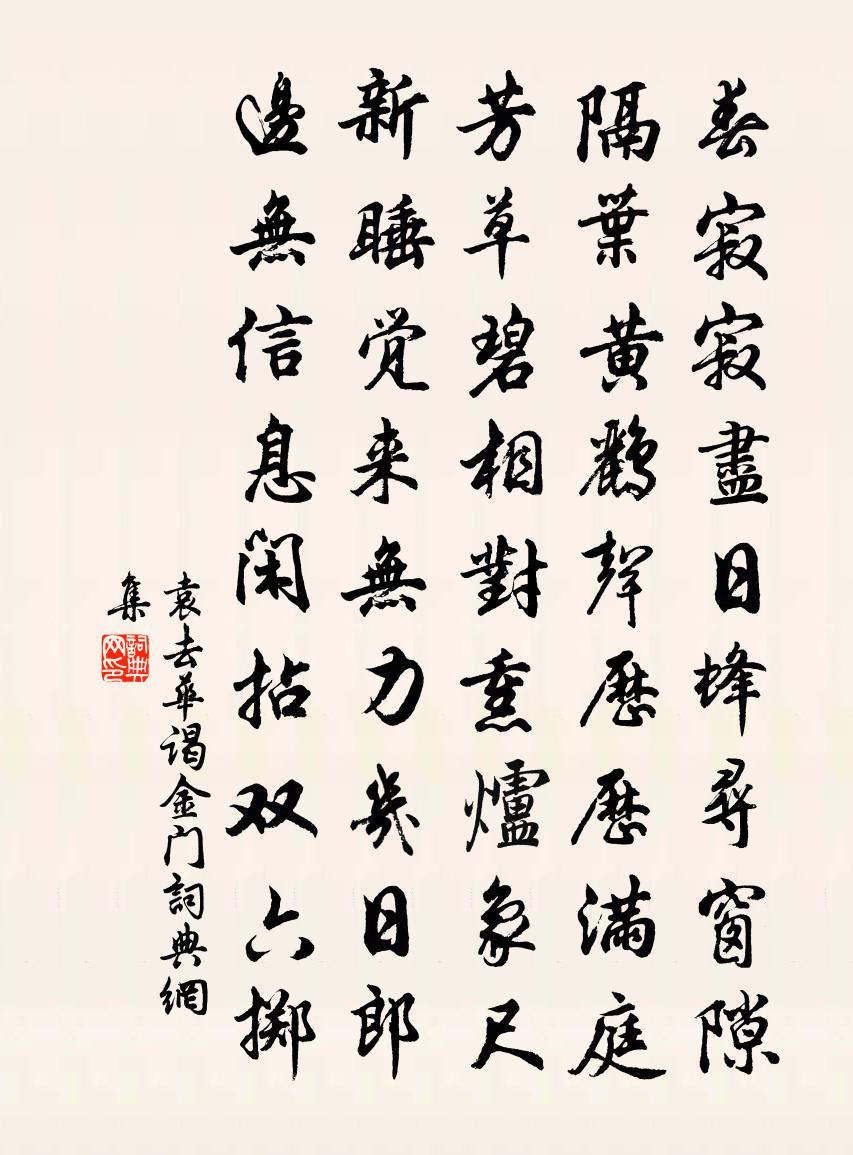 春寂寂盡日蜂尋窗隙
隔葉黃鸝聲歷歷滿庭
芳草碧相對熏爐象尺
新睡觉来無力幾日郎
邊無信息闲拈双六掷
袁去華谒金门詞典網
集
詞典
网印